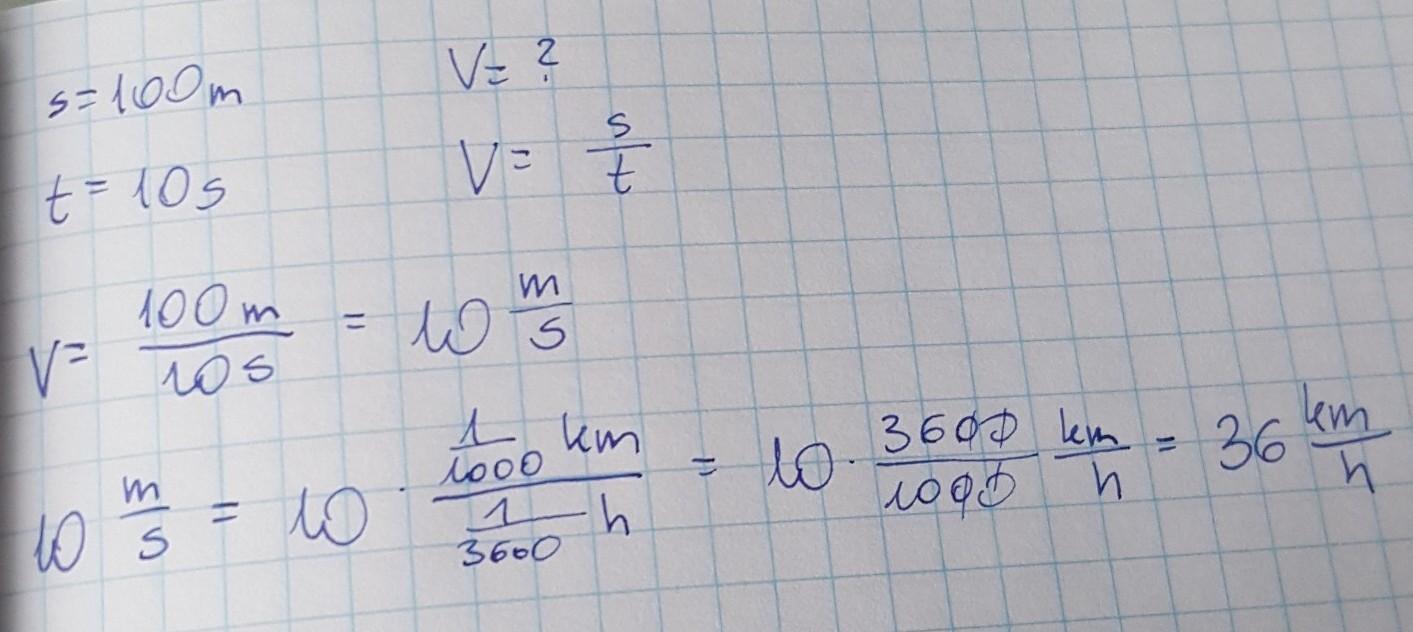 s = 100m V = ?
t = 10s V = s/t
V = 100m/10s = 10 m/s
10 m/s = 10 · (1/1000 km)/(1/3600 h) = 10 · 3600/1000 km/h = 36 km/h